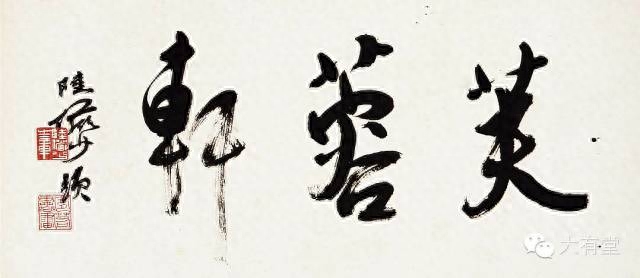 芙蓉軒
陸儼少題
大有堂